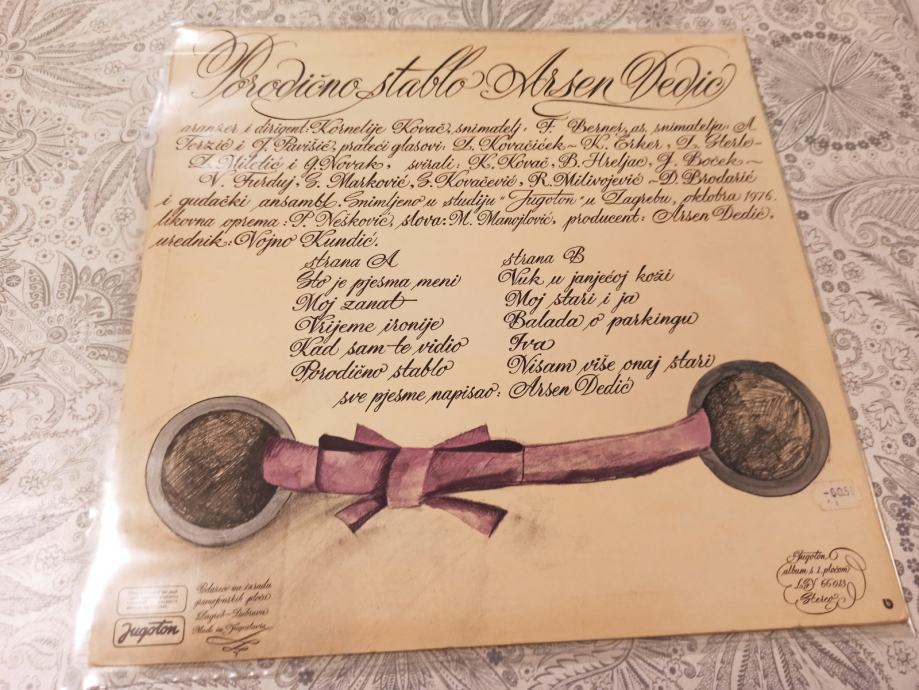 Porodično stablo Arsen Dedić
aranžer i dirigent: Kornelije Kovač, snimatelj: F. Berner, as. snimatelja: A.
Terzić i I. Pavišić, prateći glasovi: L. Kovačiček ~ K. Erker, L. Sterle ~
Z. Miletić i G. Novak, svirali: K. Kovač, B. Hreljac, J. Boček ~
V. Furduj, G. Marković, S. Kovačević, R. Milivojević ~ D. Brodarić
i gudački ansambl. Snimljeno u studiju "Jugoton" u Zagrebu, oktobra 1976.
likovna oprema: P. Nešković, slova: M. Manojlović, producent: Arsen Dedić,
urednik: Vojno Kundić.
strana A
Što je pjesma meni
Moj zanat
Vrijeme ironije
Kad sam te vidio
Porodično stablo
strana B
Vuk u janjećoj koži
Moj stari i ja
Balada o parkingu
Iva
Nisam više onaj stari
sve pjesme napisao: Arsen Dedić
Jugoton
Zagreb-Dubrava
Made in Yugoslavia
Jugoton
album s 1. pločom
LSY 66013
Stereo